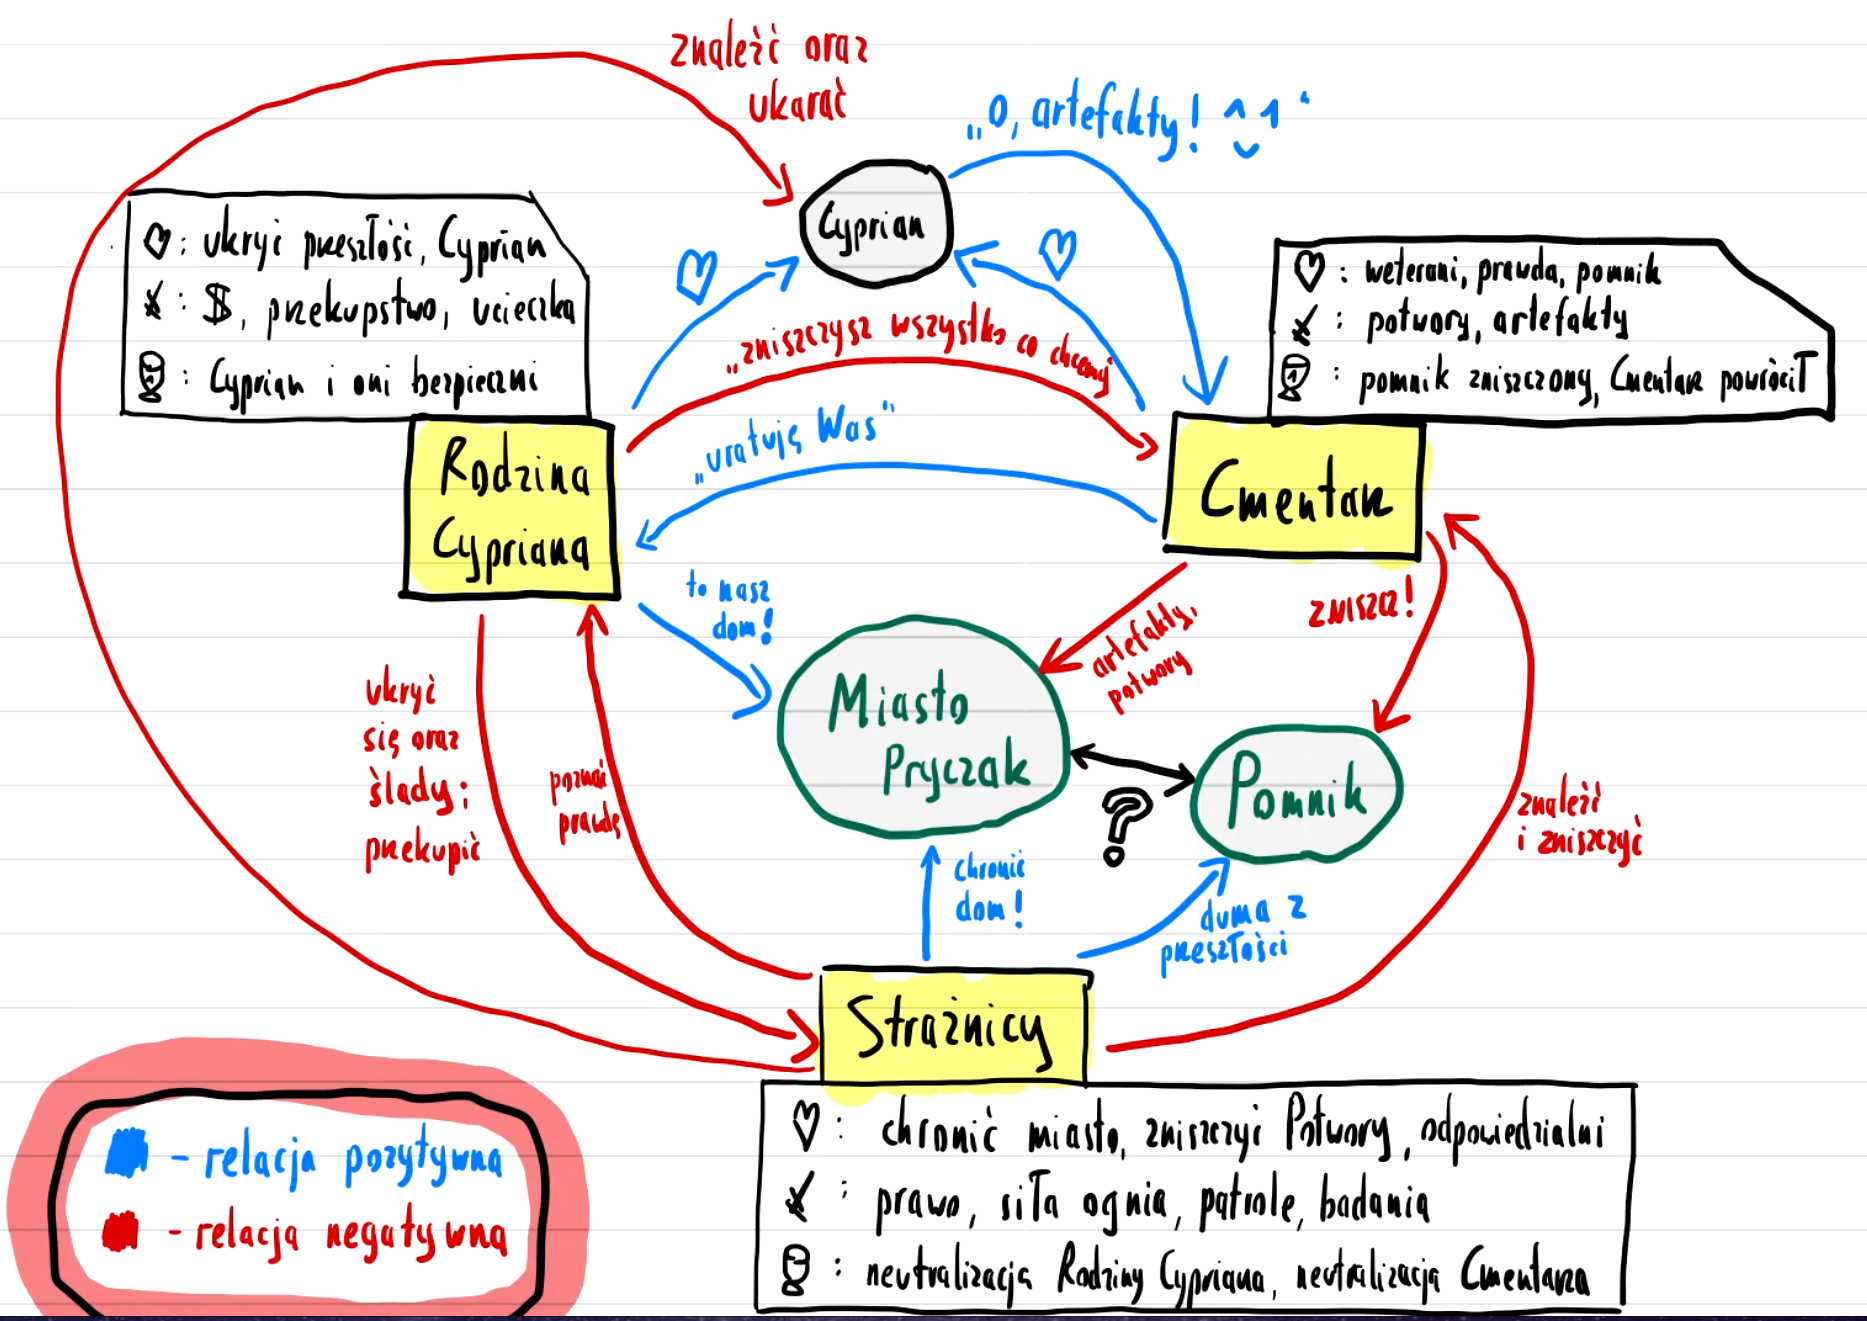 znaleźć oraz
ukarać
„O, artefakty! ^‿^"
Cyprian
♡: ukryć przeszłość, Cyprian
: $, przekupstwo, ucieczka
: Cyprian i oni bezpieczni
♡: weterani, prawda, pomnik
: potwory, artefakty
: pomnik zniszczony, Cmentarz powrócił
„zniszczysz wszystko co chcemy"
„uratuję Was"
Rodzina
Cypriana
Cmentarz
to nasz
dom!
artefakty,
potwory
ZNISZCZ!
Miasto
Pryczak
Pomnik
?
ukryć
się oraz
ślady;
przekupić
poznać
prawdę
znaleźć
i zniszczyć
chronić
dom!
duma z
przeszłości
Strażnicy
♡: chronić miasto, zniszczyć Potwory, odpowiedzialni
: prawo, siła ognia, patrole, badania
: neutralizacja Rodziny Cypriana, neutralizacja Cmentarza
- relacja pozytywna
- relacja negatywna